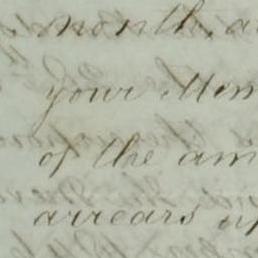 month, a
your Mem
of the am
arrears up